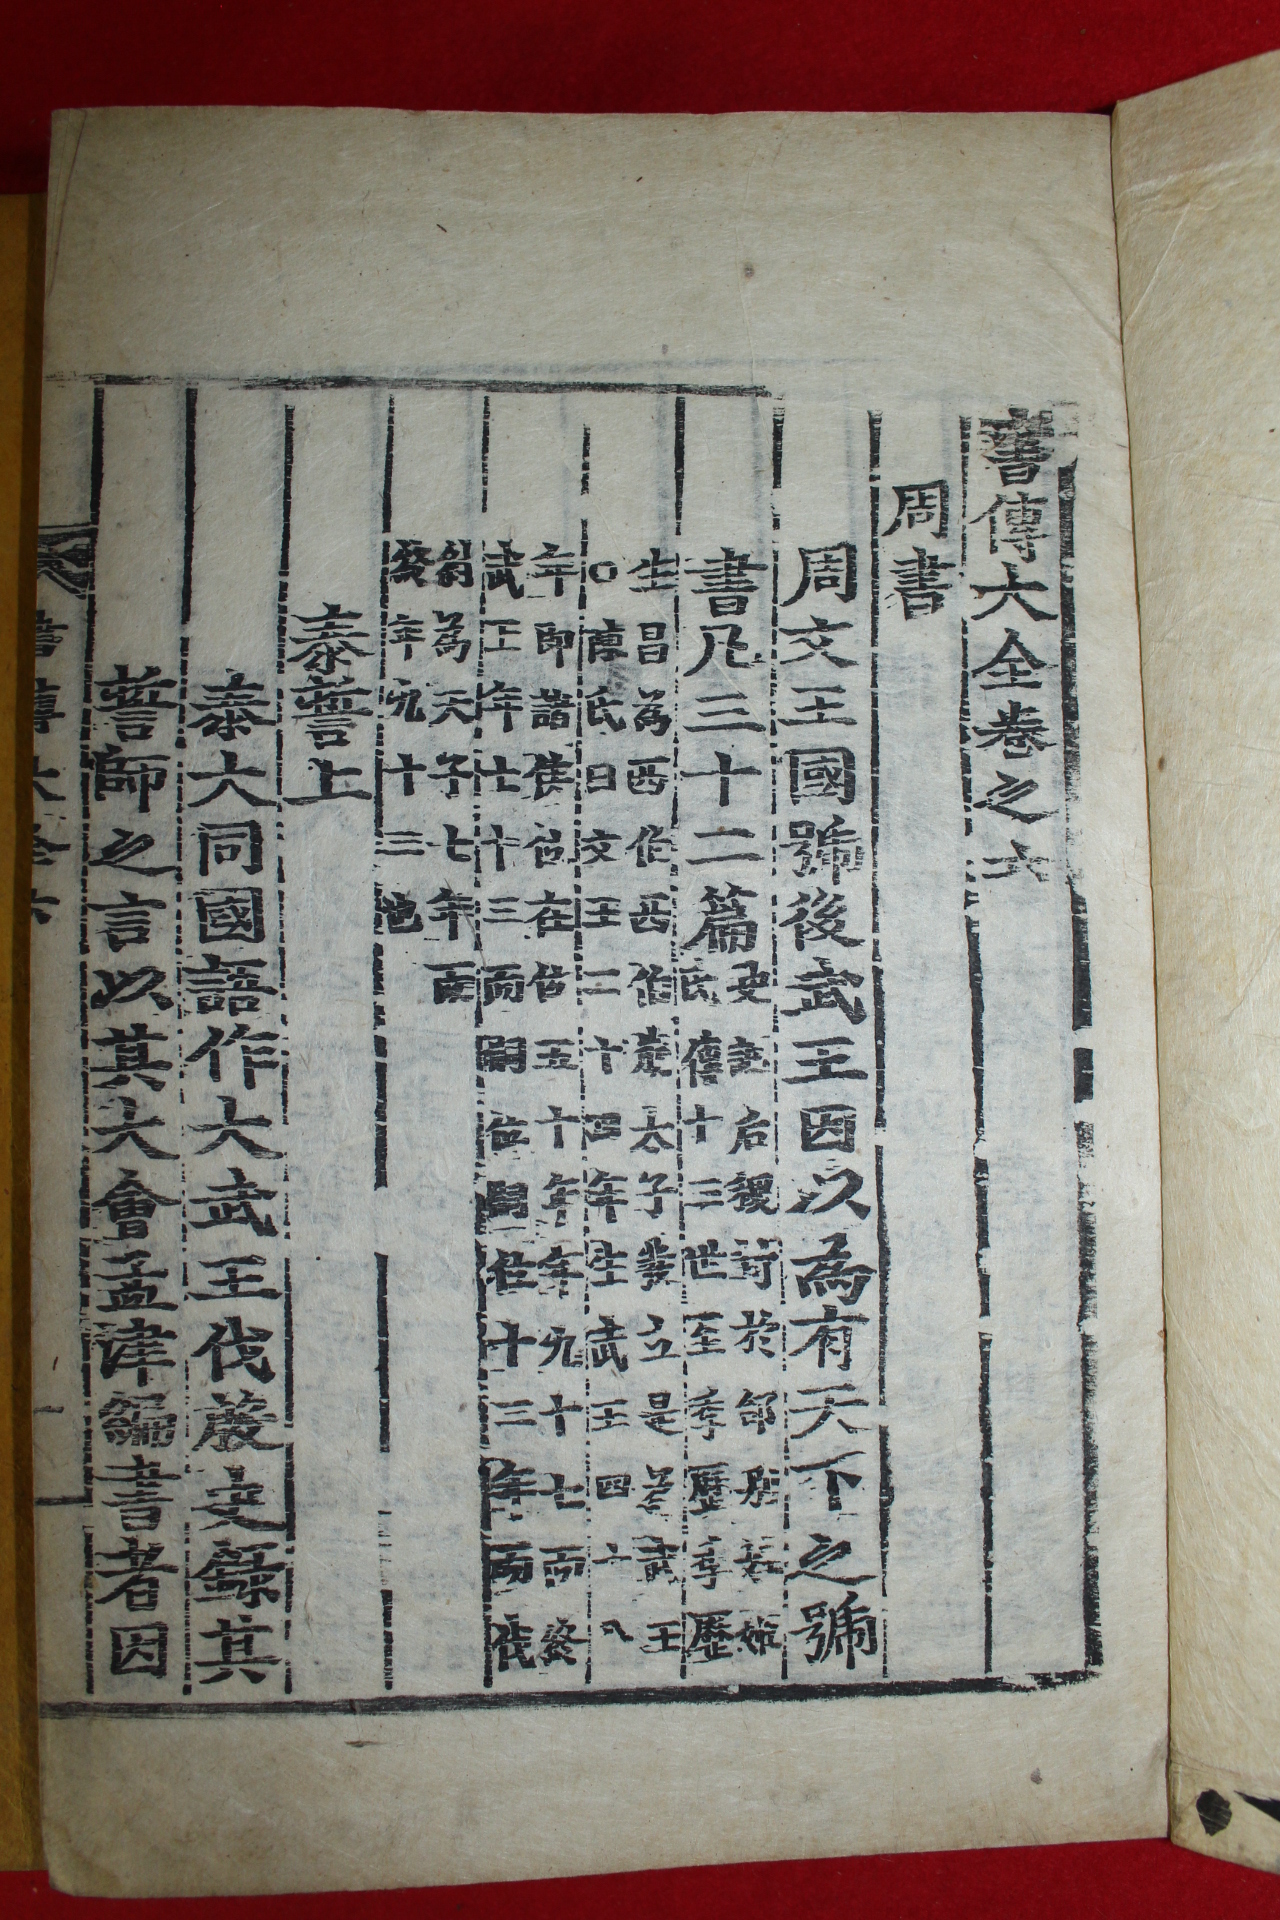 書傳大全卷之六
周書
周文王國號後武王因以為有天下之號
書凡三十二篇
史記后稷封於邰別姓姬
氏傳十三世至季歷季歷
生昌為西伯西伯薨太子發立是為武王
○陳氏曰文王二十四年生武王四十八
年即諸侯位在位五十年年九十七而終
武王年七十三而嗣位嗣位十三年而伐
紂為天子七年而
年九十三也
泰誓上
泰大同國語作大武王伐殷史錄其
誓師之言以其大會孟津編書者因
書傳大全六
一